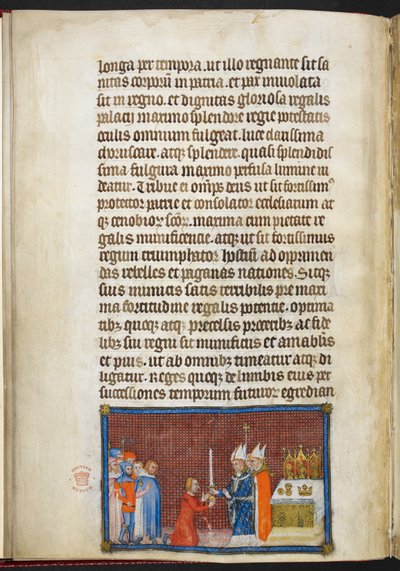 longa per tempora. ut illo regnante sit sa
nitas corporū in patria. et pax inuiolata
sit in regno. et dignitas gloriosa regalis
palacij maximo splendore regie potestatis
oculis omnium fulgeat. luce clarissima
choruscare. atqꝫ splendere. quasi splendidis
sima fulgura maximo perfusa lumine ui
deatur. Tribue ei omp̄s deus ut sit fortissimꝰ
protector patrie et consolator ecclesiarum at
qꝫ cenobioꝝ scōꝝ. maxima cum pietate re
galis munificencie. atqꝫ ut sit fortissimus
regum triumphator hostiū ad opprimen
das rebelles et paganas nationes. Sitqꝫ
suis inimicis satis terribilis pre maxi
ma fortitudine regalis potencie. optima
tibꝫ quoqꝫ atqꝫ precelsis proceribꝫ ac fide
libꝫ sui regni sit munificus et amabilis
et pius. ut ab omnibꝫ timeatur atqꝫ di
ligatur. Reges quoqꝫ de lumbis eius per
successiones temporum futuroꝝ egredian
BRITISH
MUSEUM